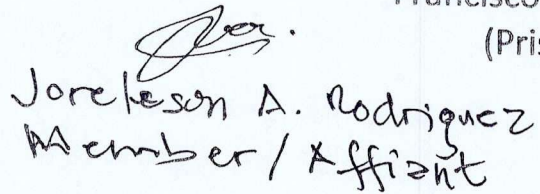 Francisco
(Pris
Joreleson A. Rodriguez
Member / Affiant